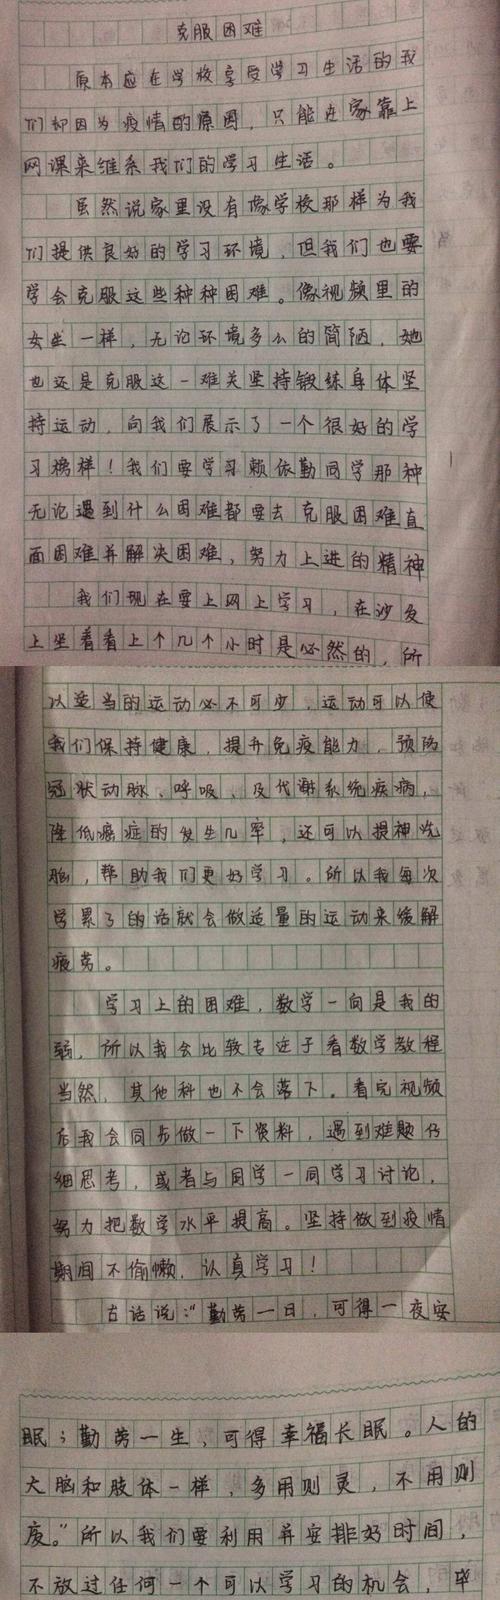 克服困难
原本应在学校享受学习生活的我
们却因为疫情的原因，只能在家靠上
网课来维系我们的学习生活。
虽然说家里没有像学校那样为我
们提供良好的学习环境，但我们也要
学会克服这些种种困难。像视频里的
女生一样，无论环境多么的简陋，她
也还是克服这一难关坚持锻练身体坚
持运动，向我们展示了一个很好的学
习榜样！我们要学习赖依勤同学那种
无论遇到什么困难都要去克服困难直
面困难并解决困难，努力上进的精神
我们现在要上网上学习，在沙发
上坐着看上个几个小时是必然的，所
以适当的运动必不可少，运动可以使
我们保持健康，提升免疫能力，预防
冠状动脉、呼吸、及代谢系统疾病，
降低癌症的发生几率，还可以提神洗
脑，帮助我们更好学习。所以我每次
学累了的话就会做适量的运动来缓解
疲劳。
学习上的困难，数学一向是我的
弱，所以我会比较专注于看数学教程
当然，其他科也不会落下。看完视频
后我会同步做一下资料，遇到难题仔
细思考，或者与同学一同学习讨论，
努力把数学水平提高。坚持做到疫情
期间不偷懒，认真学习！
古话说：“勤劳一日，可得一夜安
眠；勤劳一生，可得幸福长眠。人的
大脑和肢体一样，多用则灵，不用则
废。”所以我们要利用并安排好时间，
不放过任何一个可以学习的机会，毕